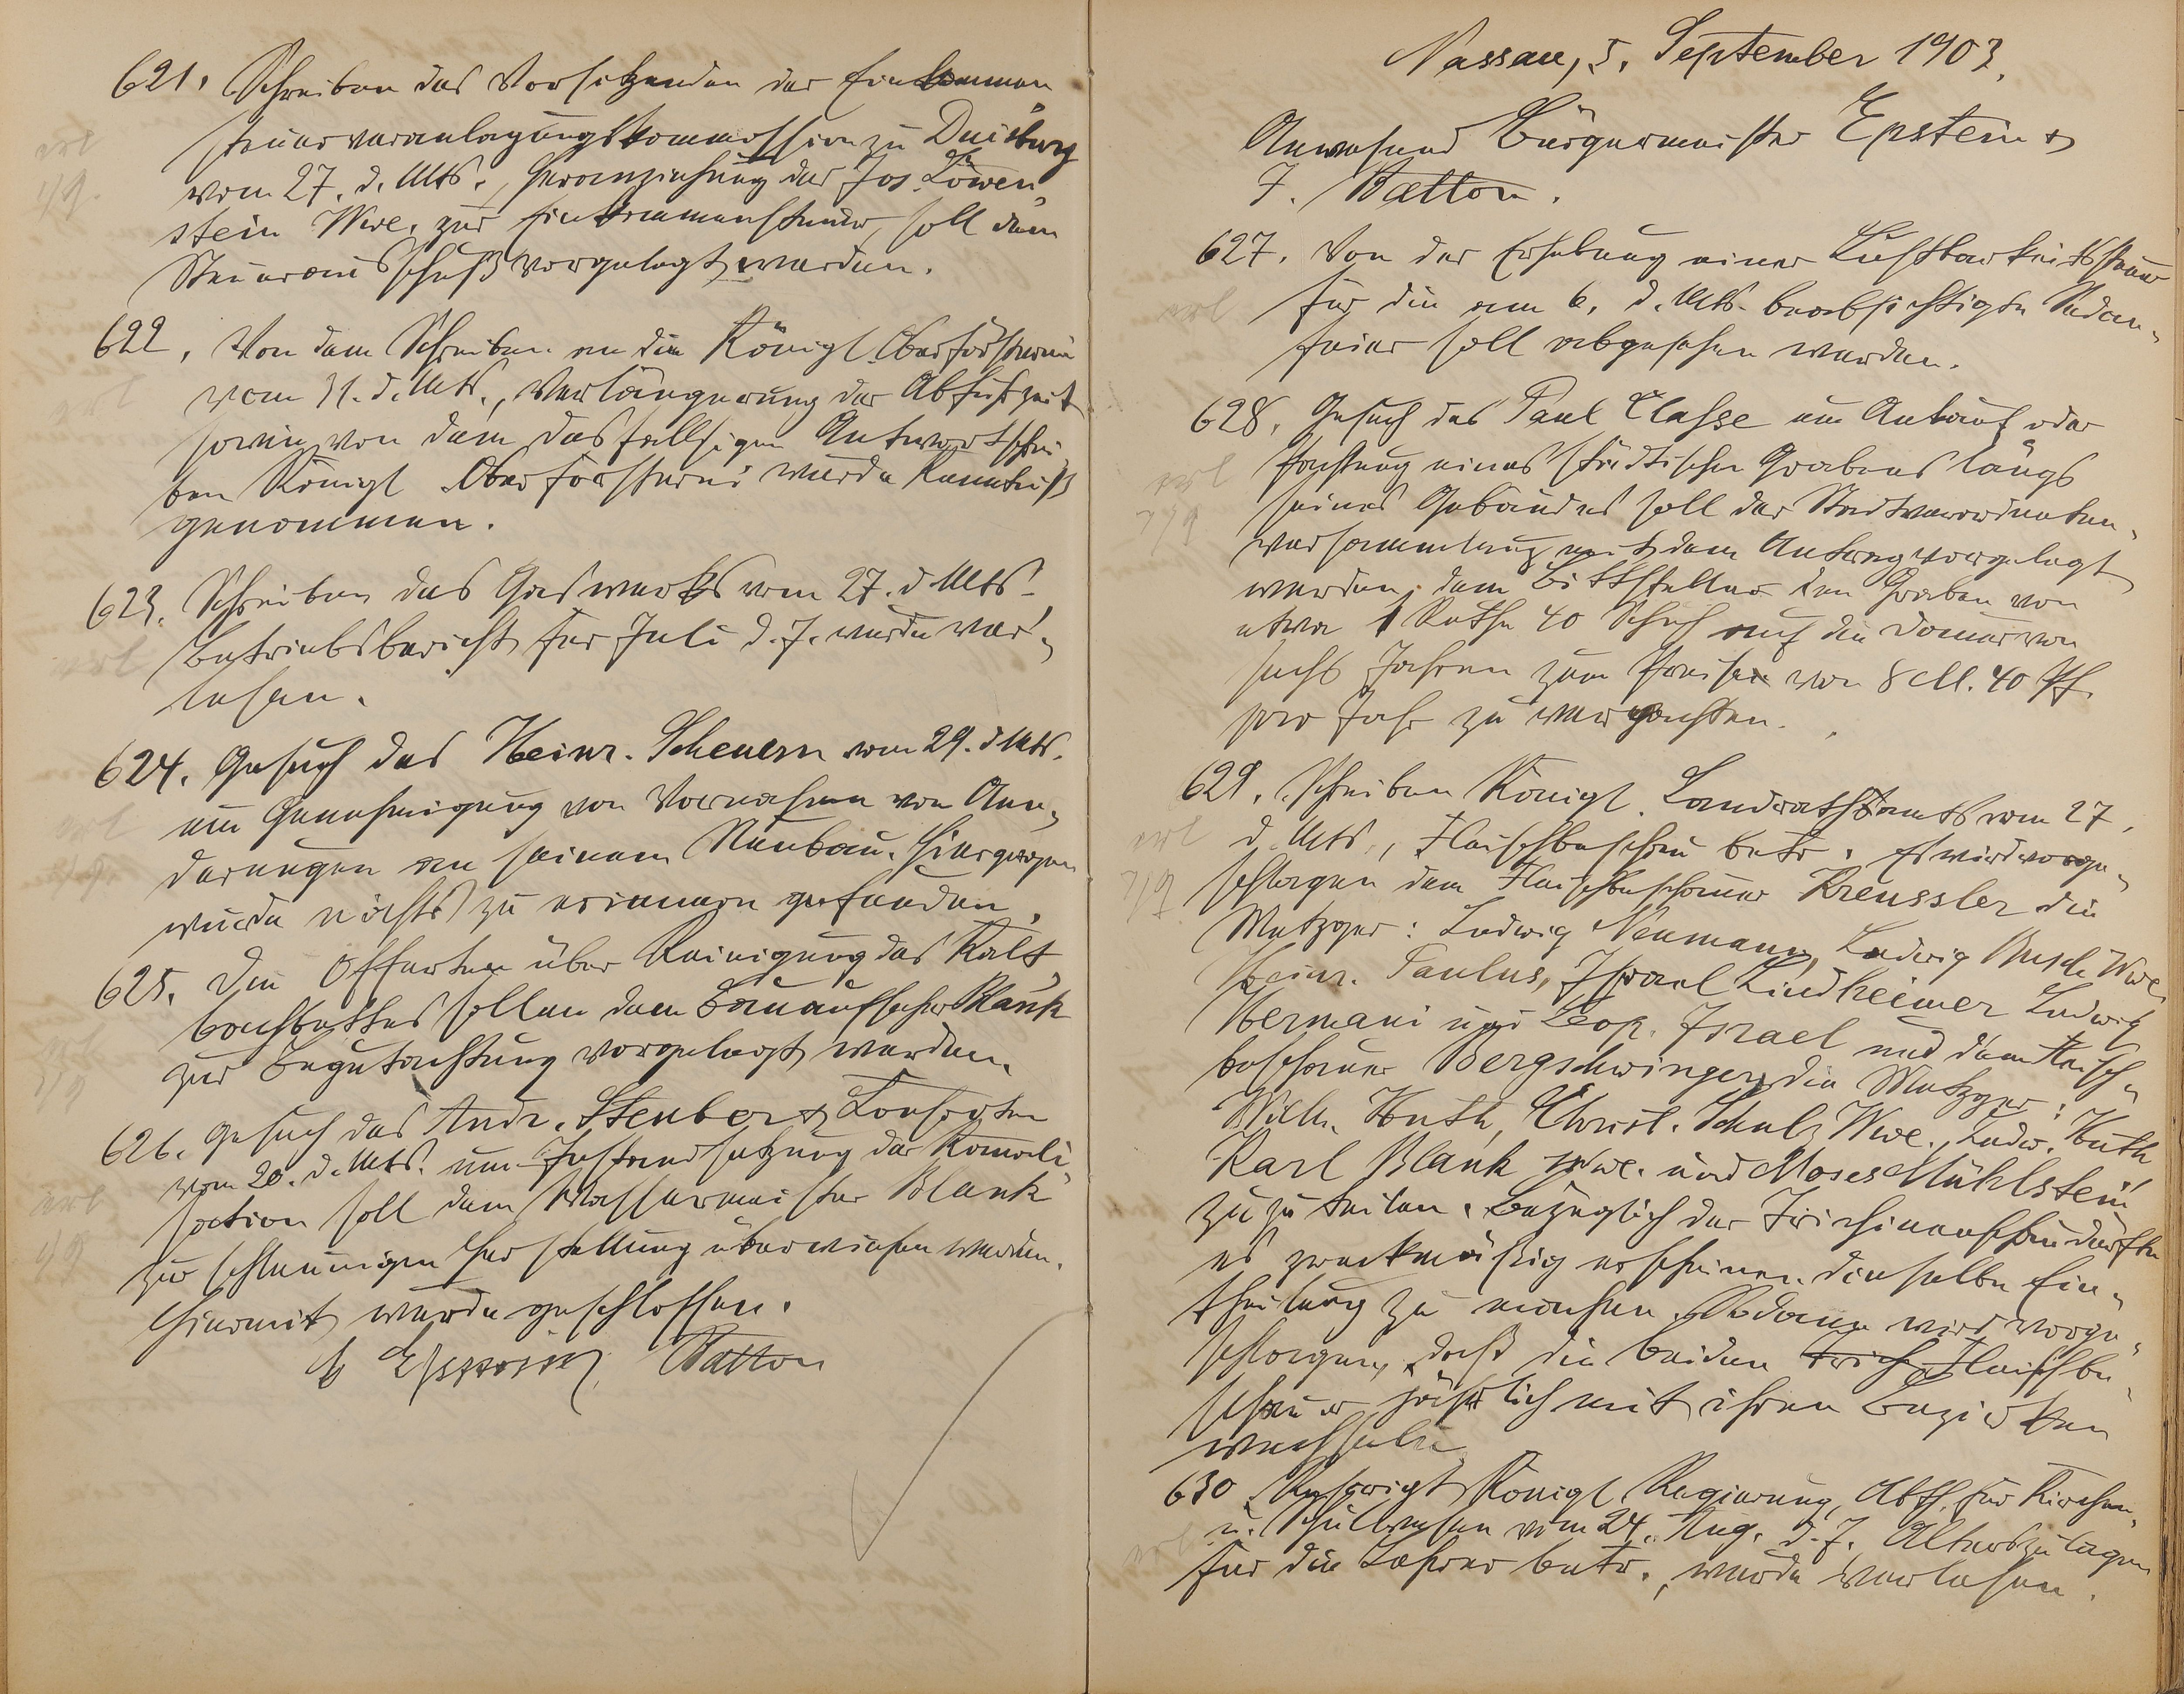 621. Schreiben des Vorsitzenden der Einkommen
steuerveranlagungskommission zu Duisburg
vom 27. d. Mts., Heranziehung der Jos. Löwen
stein Wwe. zur Einkommensteuer, soll dem
Steuerausschuß vorgelegt werden.
622. Von dem Schreiben an die Königl. Oberförsterei
vom 31. d. Mts., Verlängerung der Abfuhrzeit
sowie von dem desfallsigen Antwortschrei
ben Königl. Oberförsterei wurde Kenntniß
genommen.
623. Schreiben des Gaswerks vom 27. d Mts.,
Betriebsbericht für Juli d. J. wurde ver-
lesen.
624. Gesuch des Heinr. Scheuern vom 29. d Mts.
um Genehmigung von Vornahme von Aen-
derungen an seinem Neubau. Hiergegen
wurde nichts zu erinnern gefunden.
625. Die Offerten über Reinigung des Kalt
bachbettes sollen dem Bauaufseher Blank
zur Begutachtung vorgelegt werden.
626. Gesuch des Andr. Steuber & Consorten
vom 20. d. Mts. um Instandsetzung der Kanali-
sation soll dem Wassermeister Blank
zur schleunigen Herstellung überwiesen werden.
Hiermit wurde geschlossen.
Batton
erl
1/9.
Nassau, 5. September 1903.
Anwesend Bürgermeister Epstein &
J. Batton.
627. Von der Erhebung einer Lustbarkeitssteuer
für die am 6. d. Mts. beabsichtigte Sedan-
feier soll abgesehen werden.
628. Gesuch des Paul Classe um Ankauf oder
Pachtung eines städtischen Grabens längs
seines Gebäudes soll der Stadtverordneten-
versammlung mit dem Antrag vorgelegt
werden, dem Bittsteller den Graben von
etwa 1 Ruthe 40 Schuh auf die Dauer von
sechs Jahren zum Preise von 8 M. 40 Pf.
pro Jahr zu verpachten.
629. Schreiben Königl. Landrathsamts vom 27.
d. Mts., Fleischbeschau betr. Es wird vorge-
schlagen dem Fleischbeschauer Kreussler die
Metzger: Ludwig Neumann, Ludwig Busch Wwe.
Heinr. Paulus, Israel Lindheimer Ludwig
Hermani und Leop. Israel und dem Fleisch-
beschauer Bergschwinger die Metzger:
Wilh. Huth, Christ. Schulz Wwe., Ludw. Huth
Karl Blank Wwe. und Moses Mühlstein
zuzuteilen. Bezüglich der Trichinenschau dürfte
es zweckmäßig erscheinen dieselbe Ein-
theilung zu machen. Sodann wird vorge-
schlagen, daß die beiden Trich. Fleischbe-
schauer jährlich mit ihren Bezirken
wechseln.
630. Rescript Königl. Regierung, Abth. für Kirchen-
u. Schulwesen vom 24. Aug. d. J. Alterszulagen
für die Lehrer betr., wurde verlesen.
erl
erl
7/9
erl
7/9